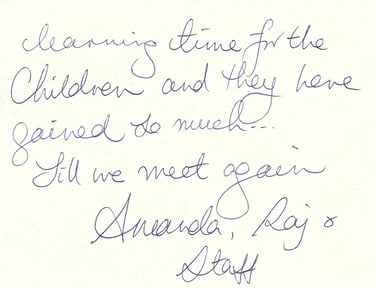 learning time for the
Children and they have
gained so much...
Till we meet again
Amanda, Raj &
Staff